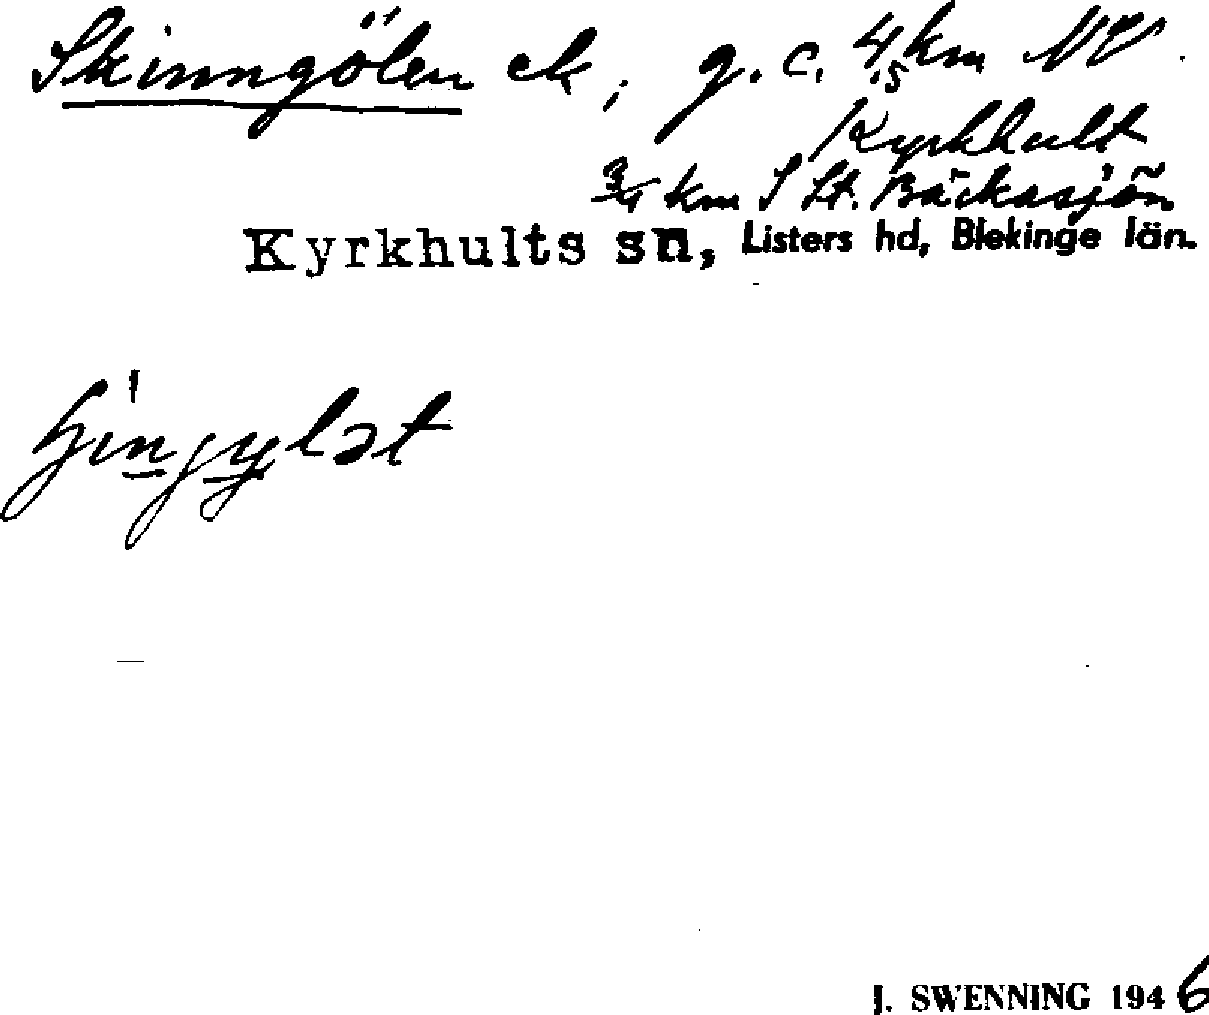 Skinngölen ek, g. c. 4,5 km NV.
Kyrkhult
3/4 km S St. Bäckasjön
Kyrkhults sn, Listers hd, Blekinge län.
J. SWENNING 1946